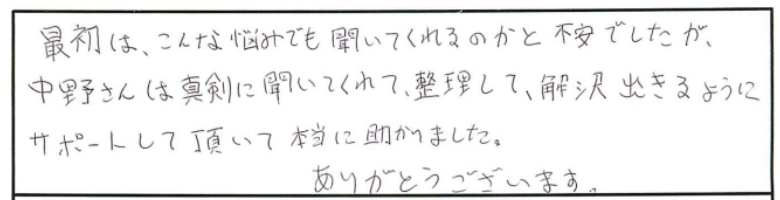 最初は、こんな悩みでも聞いてくれるのかと不安でしたが、
中野さんは真剣に聞いてくれて、整理して、解決出きるように
サポートして頂いて本当に助かりました。
ありがとうございます。